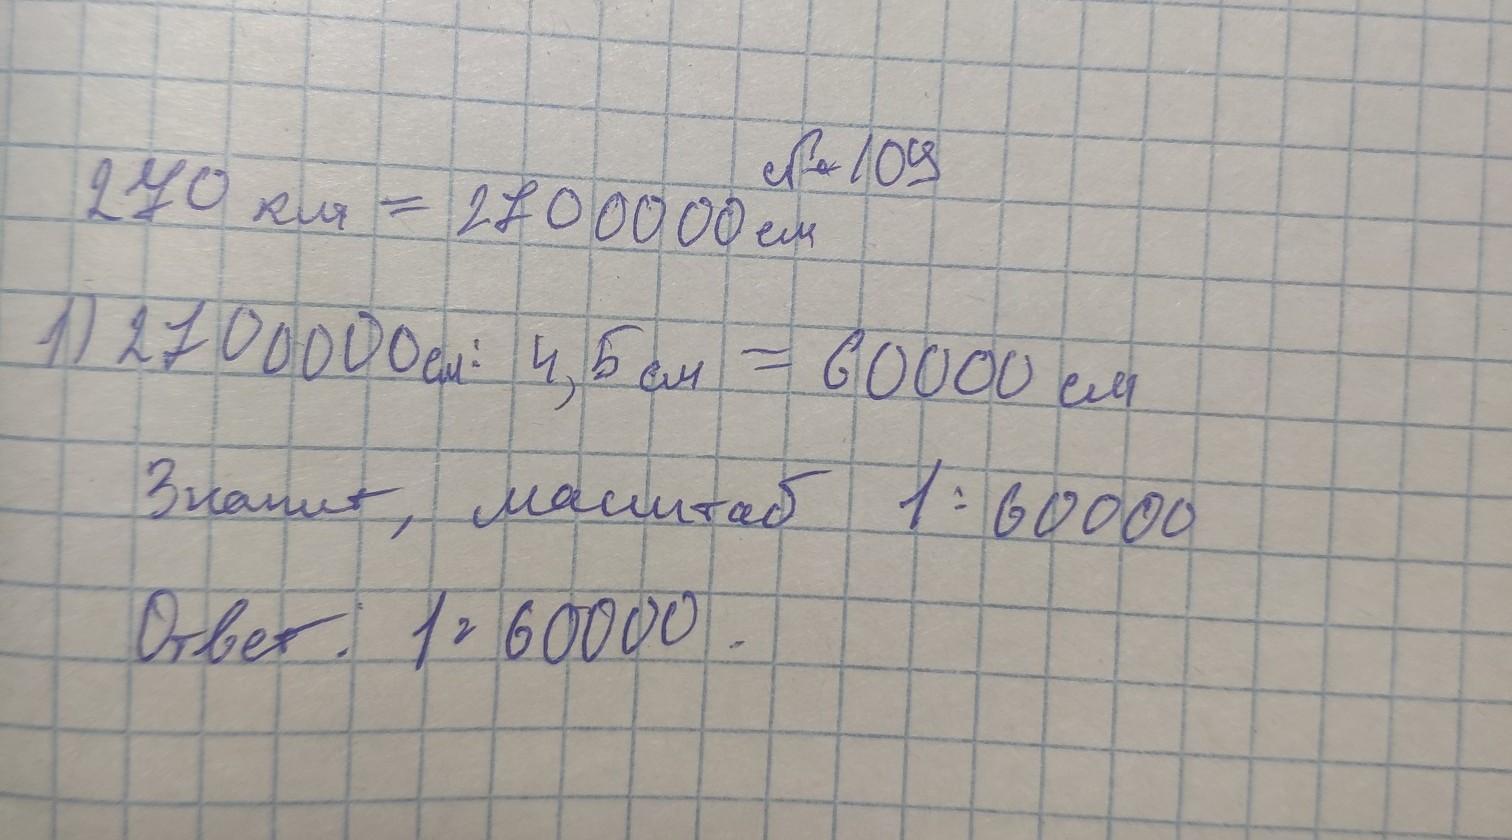 № 109
270 км = 2700000 см
1) 2700000 см : 4,5 см = 60000 см
Значит, масштаб 1 : 60000
Ответ: 1 : 60000.